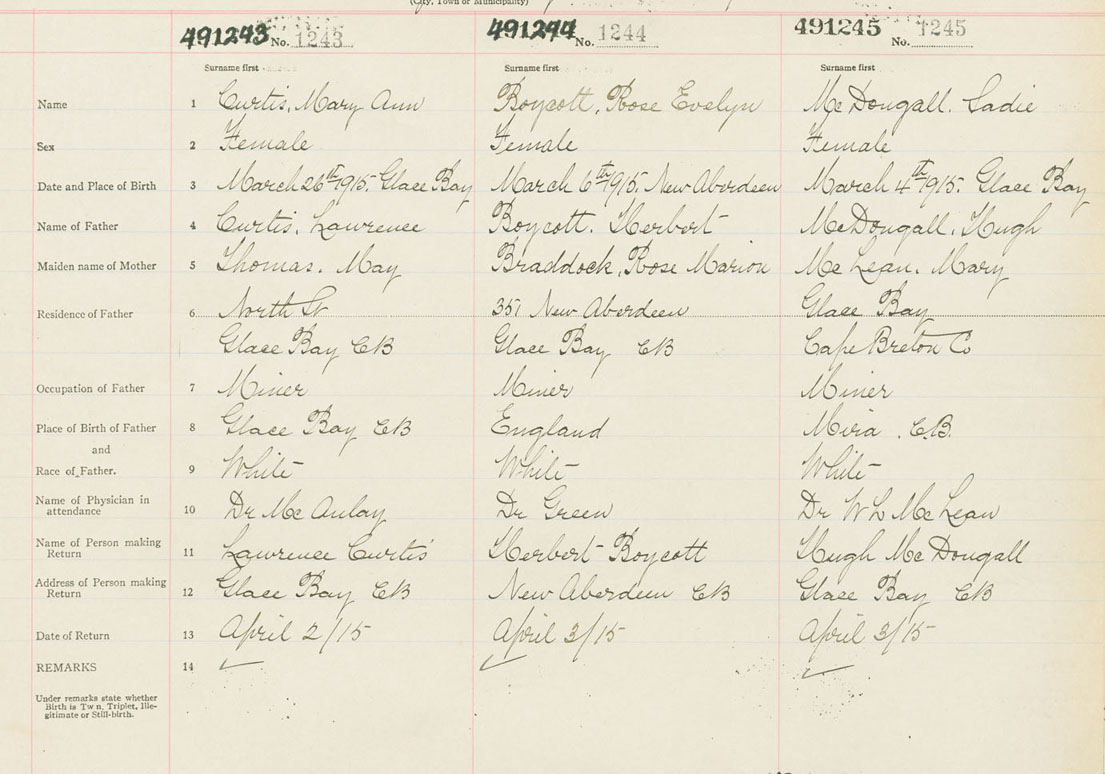 (City, Town or Municipality)
491243 No. 1243 491244 No. 1244 491245 No. 1245
Surname first Surname first Surname first
Name 1 Curtis, Mary Ann Boycott, Rose Evelyn McDougall. Sadie
Sex 2 Female Female Female
Date and Place of Birth 3 March 26th 1915. Glace Bay March 6th 1915. New Aberdeen March 4th 1915. Glace Bay
Name of Father 4 Curtis, Lawrence Boycott. Herbert McDougall. Hugh
Maiden name of Mother 5 Thomas. May Braddock, Rose Marion McLean. Mary
Residence of Father 6 North St 351 New Aberdeen Glace Bay
Glace Bay CB Glace Bay CB Cape Breton Co
Occupation of Father 7 Miner Miner Miner
Place of Birth of Father 8 Glace Bay CB England Mira. C.B.
and
Race of Father. 9 White White White
Name of Physician in
attendance 10 Dr McAulay Dr Green Dr W L McLean
Name of Person making
Return 11 Lawrence Curtis Herbert Boycott Hugh McDougall
Address of Person making
Return 12 Glace Bay CB New Aberdeen CB Glace Bay CB
Date of Return 13 April 2/15 April 3/15 April 3/15
REMARKS 14
Under remarks state whether
Birth is Twn, Triplet, Ille-
gitimate or Still-birth.